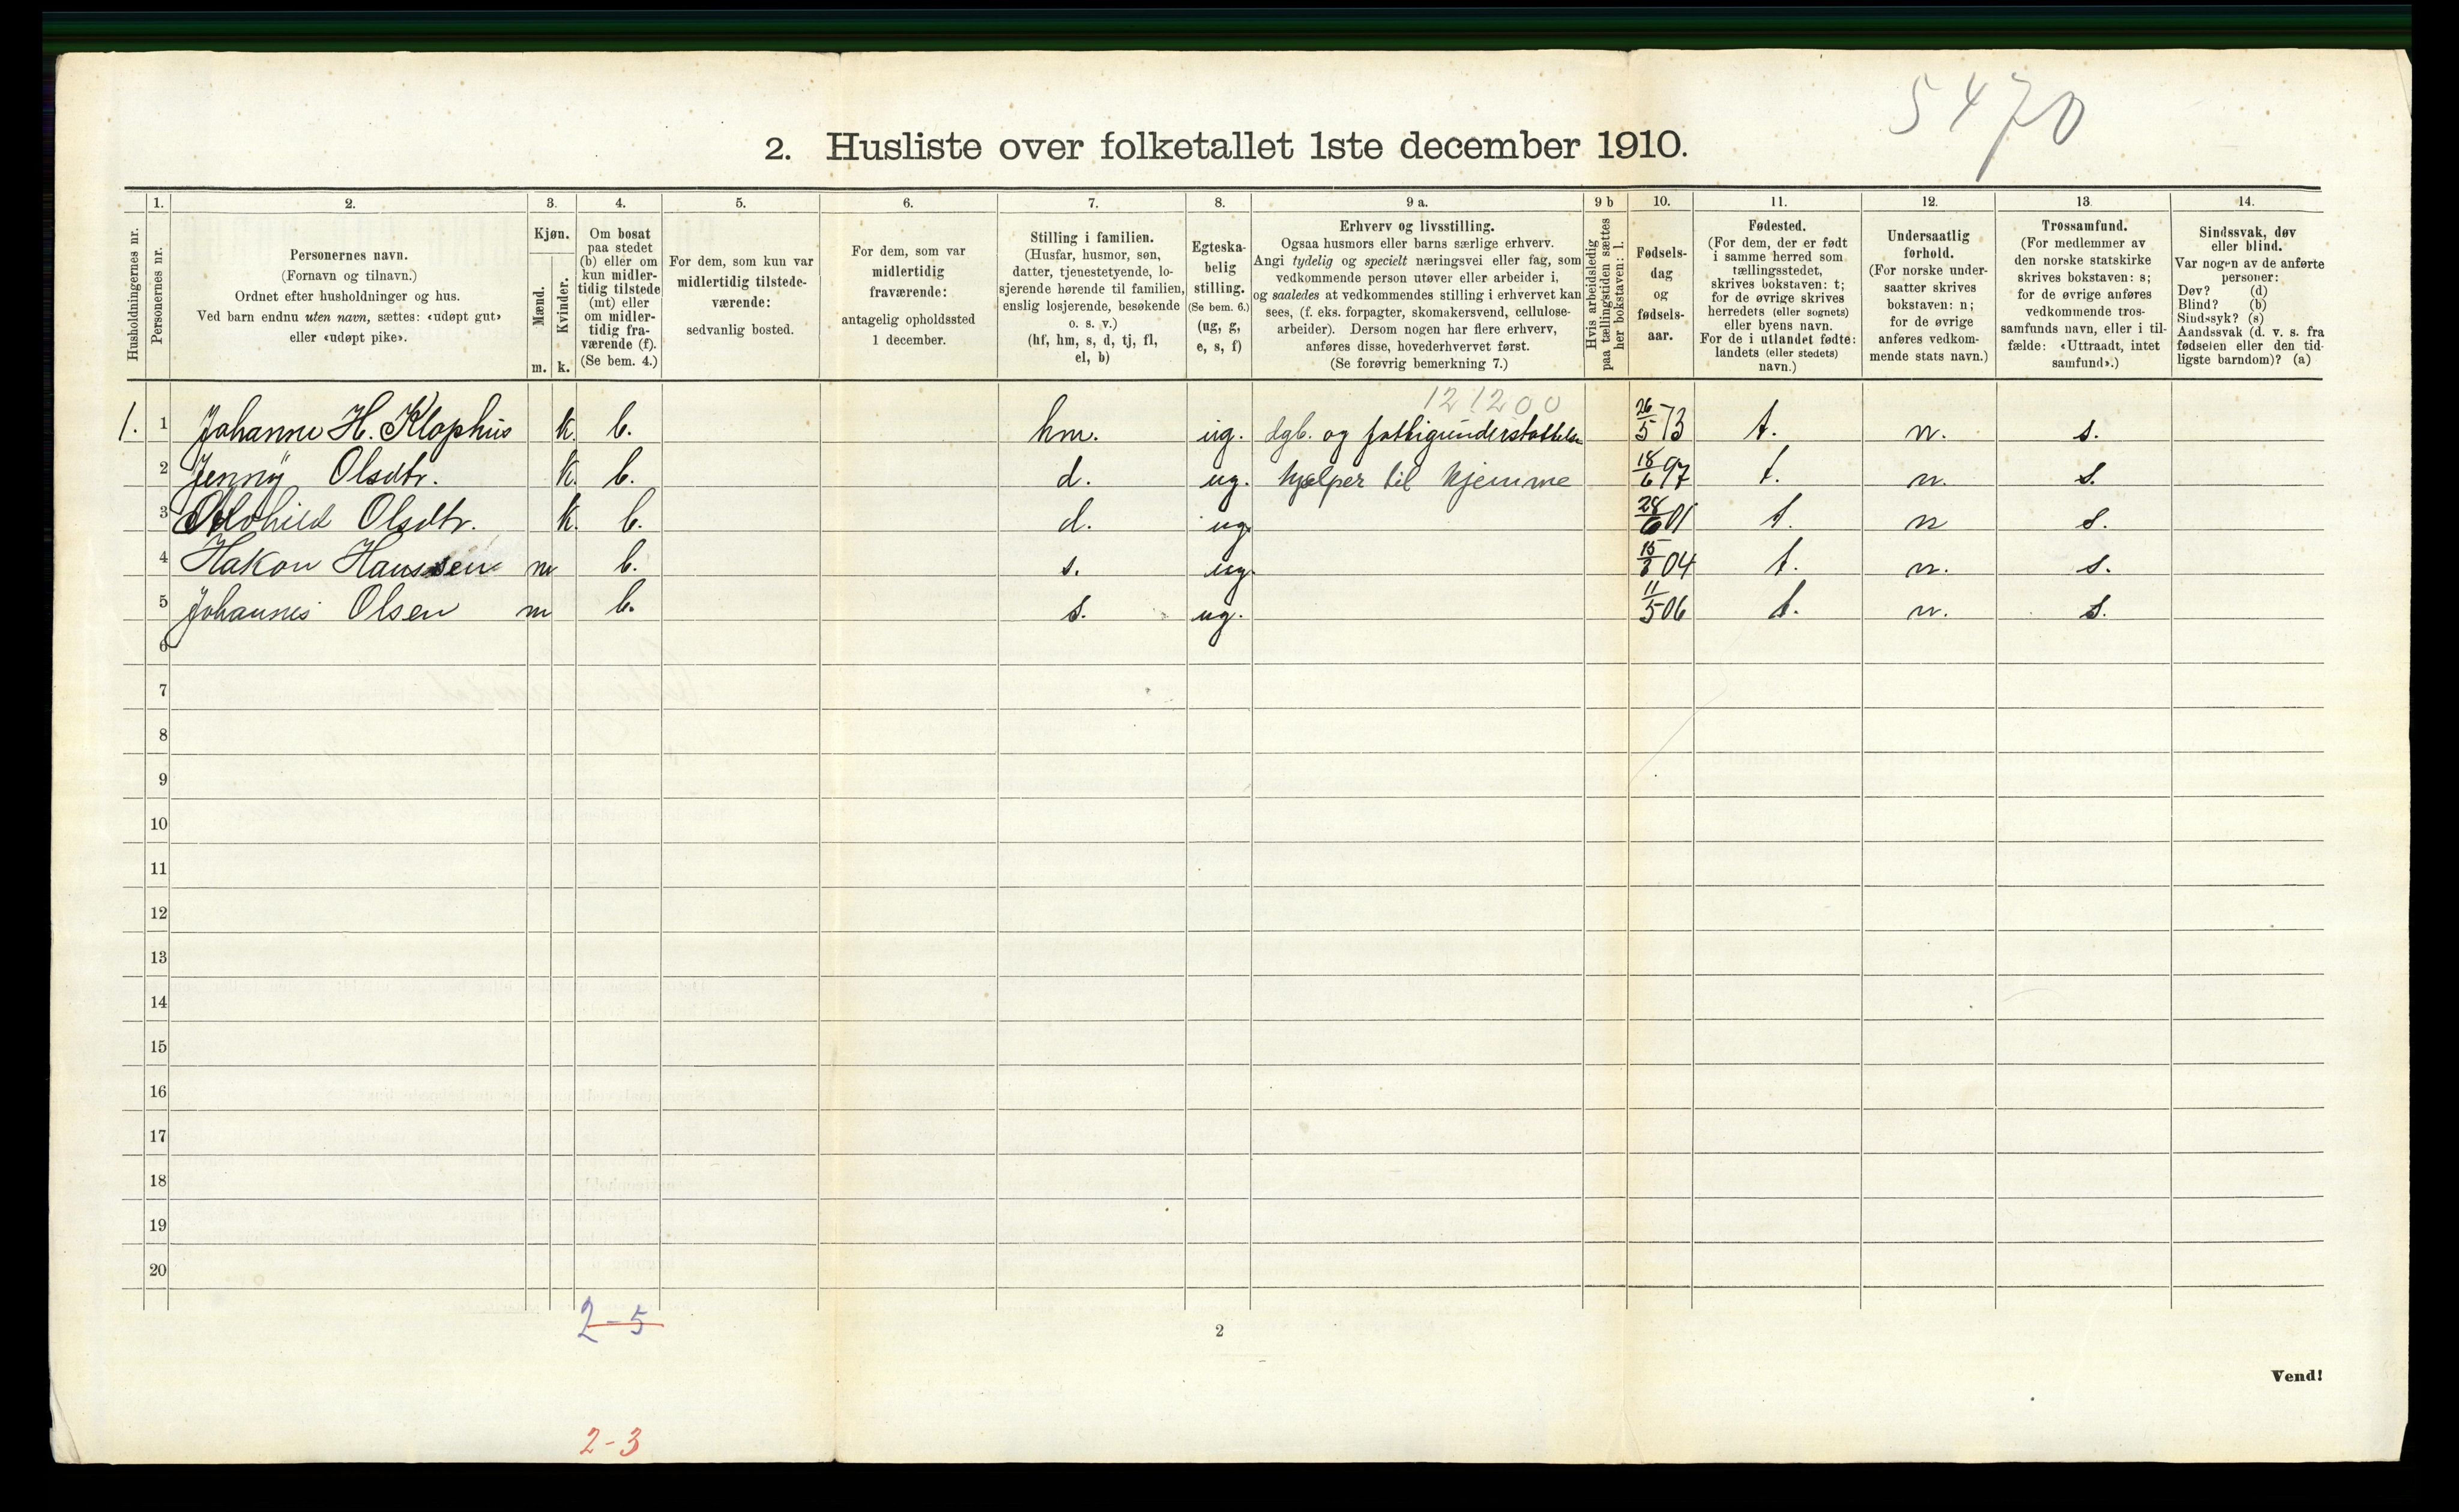 5470
2. Husliste over folketallet 1ste december 1910.
Husholdningernes nr.
1.
Personernes nr.
2.
Personernes navn.
(Fornavn og tilnavn.)
Ordnet efter husholdninger og hus.
Ved barn endnu uten navn, sættes: «udøpt gut»
eller «udøpt pike».
3.
Kjøn.
Mænd.
Kvinder.
m. k.
4.
Om bosat
paa stedet
(b) eller om
kun midler-
tidig tilstede
(mt) eller
om midler-
tidig fra-
værende (f).
(Se bem. 4.)
5.
For dem, som kun var
midlertidig tilstede-
værende:
sedvanlig bosted.
6.
For dem, som var
midlertidig
fraværende:
antagelig opholdssted
1 december.
7.
Stilling i familien.
(Husfar, husmor, søn,
datter, tjenestetyende, lo-
sjerende hørende til familien,
enslig losjerende, besøkende
o. s. v.)
(hf, hm, s, d, tj, fl,
el, b)
8.
Egteska-
belig
stilling.
(Se bem. 6.)
(ug, g,
e, s, f)
9 a.
Erhverv og livsstilling.
Ogsaa husmors eller barns særlige erhverv.
Angi tydelig og specielt næringsvei eller fag, som
vedkommende person utøver eller arbeider i,
og saaledes at vedkommendes stilling i erhvervet kan
sees, (f. eks. forpagter, skomakersvend, cellulose-
arbeider). Dersom nogen har flere erhverv,
anføres disse, hovederhvervet først.
(Se forøvrig bemerkning 7.)
9 b
Hvis arbeidsledig
paa tællingstiden sættes
her bokstaven: l.
10.
Fødsels-
dag
og
fødsels-
aar.
11.
Fødested.
(For dem, der er født
i samme herred som
tællingsstedet,
skrives bokstaven: t;
for de øvrige skrives
herredets (eller sognets)
eller byens navn.
For de i utlandet fødte:
landets (eller stedets)
navn.)
12.
Undersaatlig
forhold.
(For norske under-
saatter skrives
bokstaven: n;
for de øvrige
anføres vedkom-
mende stats navn.)
13
Trossamfund.
(For medlemmer av
den norske statskirke
skrives bokstaven: s;
for de øvrige anføres
vedkommende tros-
samfunds navn, eller i til-
fælde: «Uttraadt, intet
samfund».)
14.
Sindssvak, døv
eller blind.
Var nogen av de anførte
personer:
Døv? (d)
Blind? (b)
Sindssyk? (s)
Aandssvak (d. v. s. fra
fødselen eller den tid-
ligste barndom)? (a)
121200
1. 1 Johanne H. Klophus k. b. hm. ug. dgb. og fattigunderstøttelse 26/5 73 t. n. s.
2 Jenny Olsdtr. k. b. d. ug. hjælper til hjemme 18/6 97 t. n. s.
3 Olsdtr. k. b. d. ug. 28/6 01 t. n s.
4 Hakon Hanssen m b. s. ug. 15/3 04 t. n. s.
5 Johannes Olsen m b. s. ug. 11/5 06 t. n. s.
6
7
8
9
10
11
12
13
14
15
16
17
18
19
20
2-5
2
Vend!
2-3